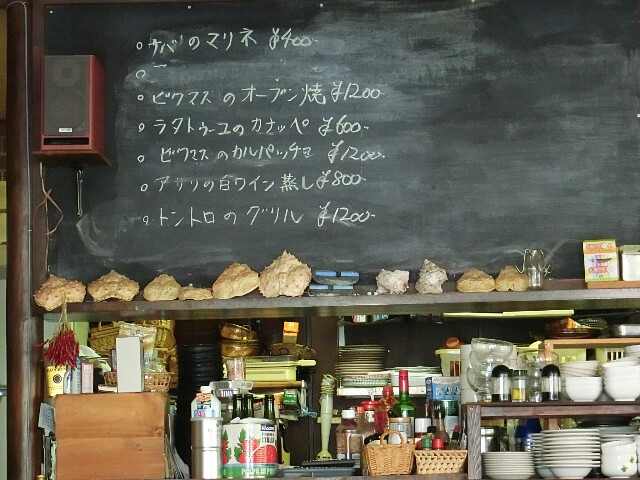 ○ サバのマリネ ¥400-
○
○ ピワマスのオーブン焼 ¥1200-
○ ラタトゥーユのカナッペ ¥600-
○ ビワマスのカルパッチョ ¥1200-
○ アサリの白ワイン蒸し ¥800-
○ トントロのグリル ¥1200-